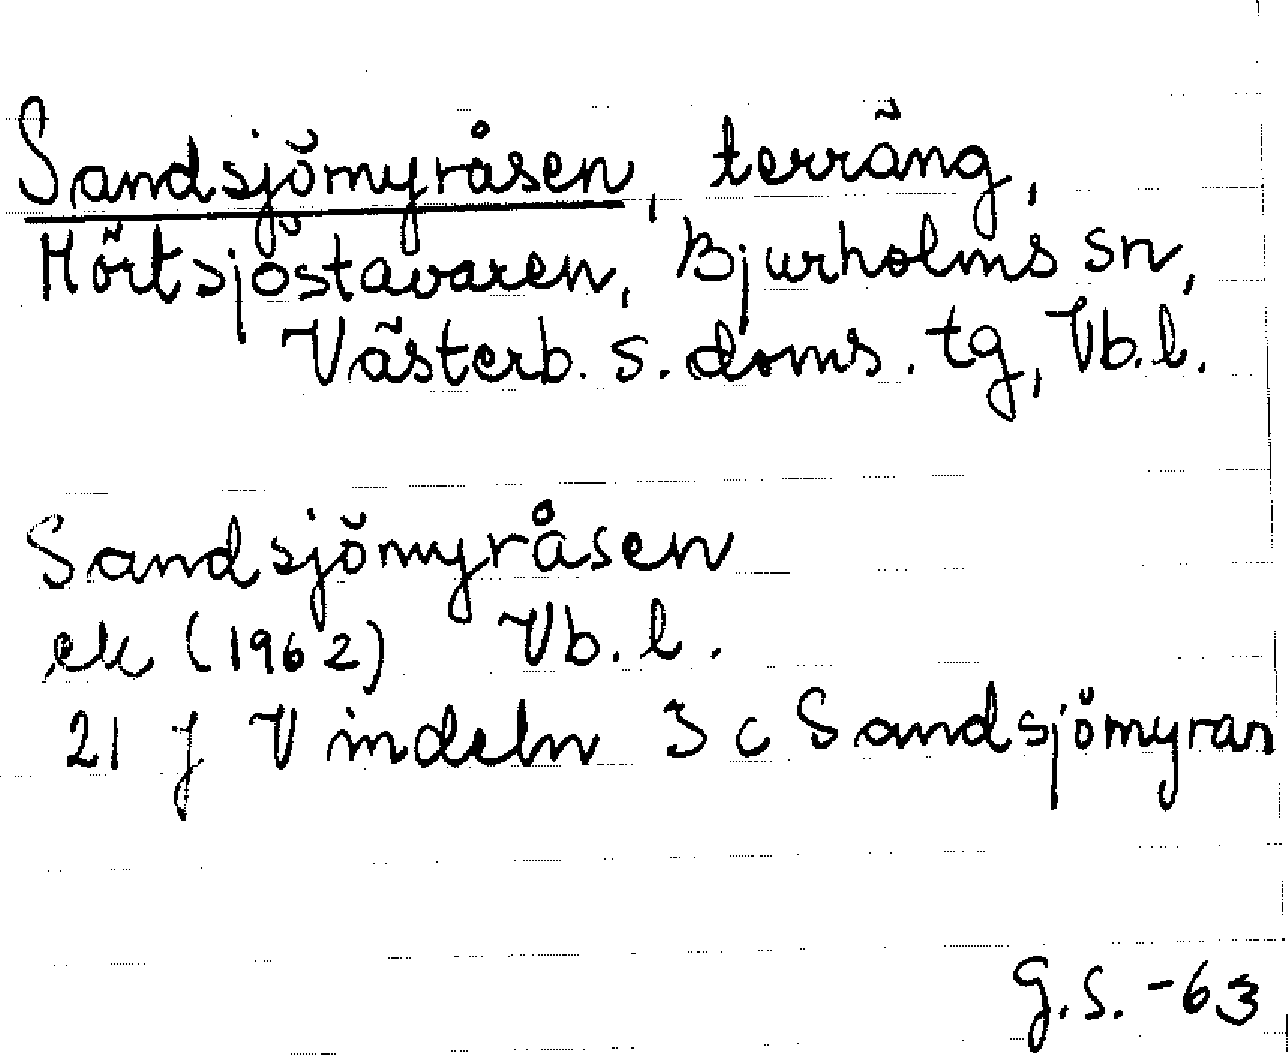 Sandsjömyråsen, terräng,
Hörtsjöstavaren, Bjurholms sn,
Västerb. s. doms. tg, Vb. l.
Sandsjömyråsen
ek (1962) Vb. l.
21 J Vindeln 3 c Sandsjömyran
G.S. -63